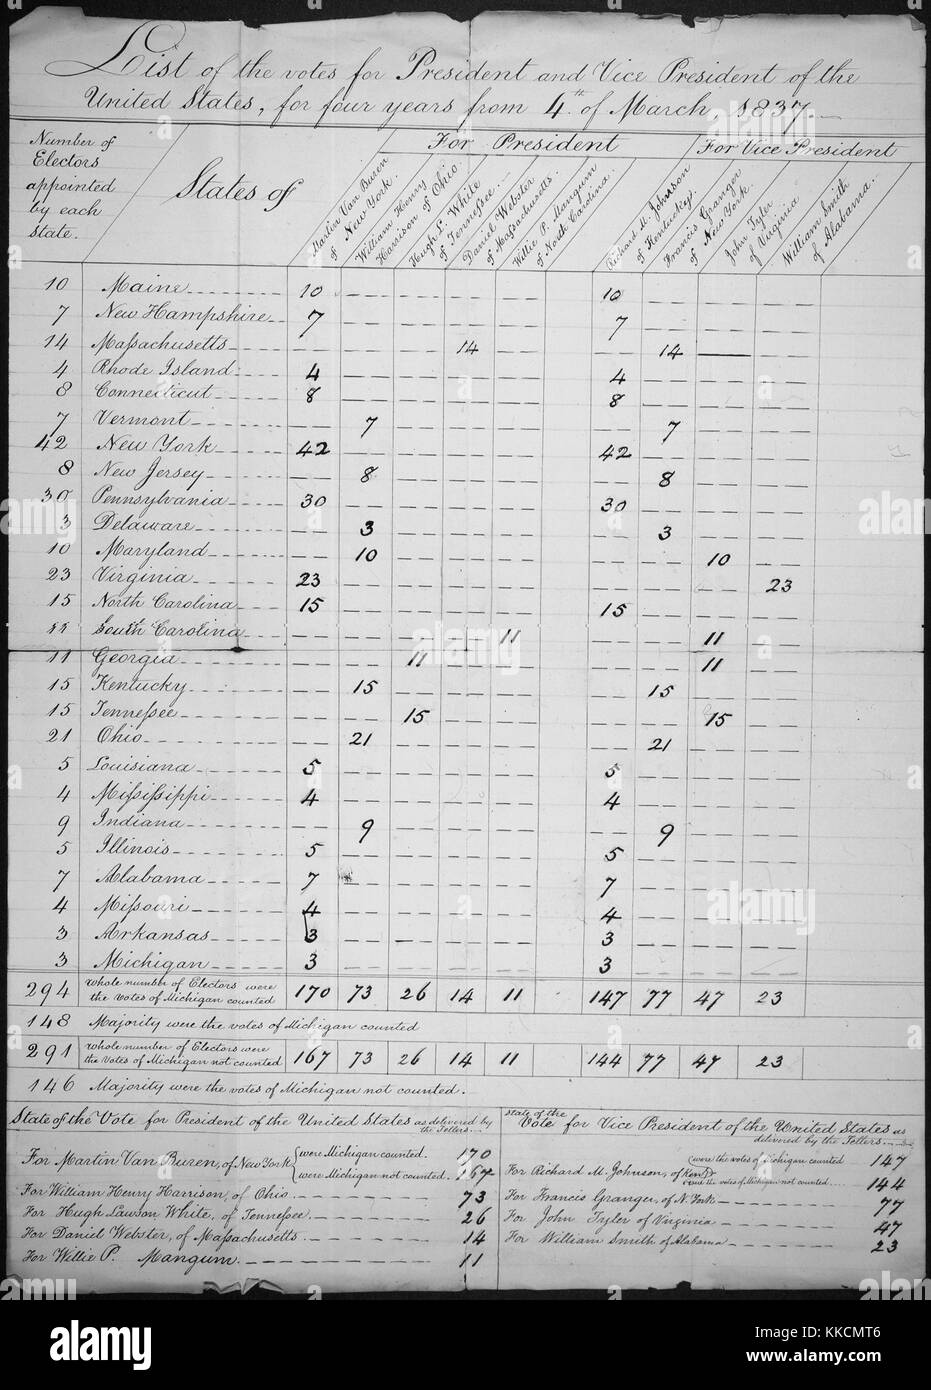 List of the votes for President and Vice President of the
United States, for four years from 4th of March, 1837.
Number of Electors appointed by each state.
States of
For President
For Vice President
Martin Van Buren of New York.
William Henry Harrison of Ohio.
Hugh L. White of Tennessee.
Daniel Webster of Massachusetts.
Willie P. Mangum of North Carolina.
Richard M. Johnson of Kentucky.
Francis Granger of New York.
John Tyler of Virginia
William Smith of Alabama.
10 Maine 10 10
7 New Hampshire 7 7
14 Massachusetts 14 14
4 Rhode Island 4 4
8 Connecticut 8 8
7 Vermont 7 7
42 New York 42 42
8 New Jersey 8 8
30 Pennsylvania 30 30
3 Delaware 3 3
10 Maryland 10 10
23 Virginia 23 23
15 North Carolina 15 15
11 South Carolina 11 11
11 Georgia 11 11
15 Kentucky 15 15
15 Tennessee 15 15
21 Ohio 21 21
5 Louisiana 5 5
4 Mississippi 4 4
9 Indiana 9 9
5 Illinois 5 5
7 Alabama 7 7
4 Missouri 4 4
3 Arkansas 3 3
3 Michigan 3 3
294 Whole number of Electors were the votes of Michigan counted 170 73 26 14 11 147 77 47 23
148 Majority were the votes of Michigan counted
291 Whole number of Electors were the votes of Michigan not counted 167 73 26 14 11 144 77 47 23
146 Majority were the votes of Michigan not counted.
State of the Vote for President of the United States as delivered by the Tellers.
For Martin Van Buren, of New York were Michigan counted. 170
were Michigan not counted. 167
For William Henry Harrison, of Ohio 73
For Hugh Lawson White, of Tennessee. 26
For Daniel Webster, of Massachusetts. 14
For Willie P. Mangum. 11
State of the Vote for Vice President of the United States as delivered by the Tellers
For Richard M. Johnson, of Ken. were the votes of Michigan counted 147
were the votes of Michigan not counted 144
For Francis Granger, of N. York 77
For John Tyler of Virginia 47
For William Smith of Alabama 23
alamy
a
alamy
Image ID: KKCMT6
www.alamy.com